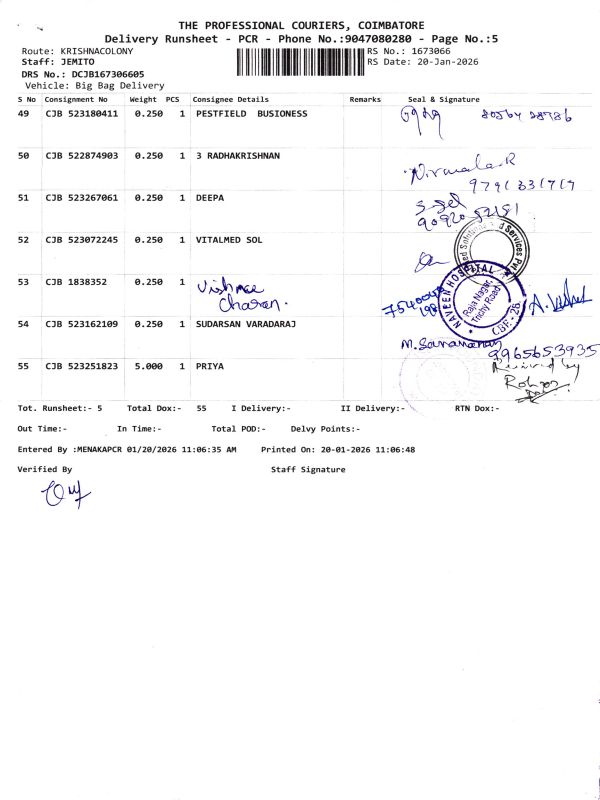 THE PROFESSIONAL COURIERS, COIMBATORE
Delivery Runsheet - PCR - Phone No.:9047080280 - Page No.:5
Route: KRISHNACOLONY RS No.: 1673066
Staff: JEMITO RS Date: 20-Jan-2026
DRS No.: DCJB167306605
Vehicle: Big Bag Delivery
S No Consignment No Weight PCS Consignee Details Remarks Seal & Signature
49 CJB 523180411 0.250 1 PESTFIELD BUSIONESS
50 CJB 522874903 0.250 1 3 RADHAKRISHNAN
Nirmala.R
51 CJB 523267061 0.250 1 DEEPA
52 CJB 523072245 0.250 1 VITALMED SOL
53 CJB 1838352 0.250 1 Vishnee Charan.
NAVEEN HOSPITAL
Raja Nagar,
Trichy Road
CBE - 26
54 CJB 523162109 0.250 1 SUDARSAN VARADARAJ
9965653935
55 CJB 523251823 5.000 1 PRIYA
Received by
Tot. Runsheet:- 5 Total Dox:- 55 I Delivery:- II Delivery:- RTN Dox:-
Out Time:- In Time:- Total POD:- Delvy Points:-
Entered By :MENAKAPCR 01/20/2026 11:06:35 AM Printed On: 20-01-2026 11:06:48
Verified By Staff Signature